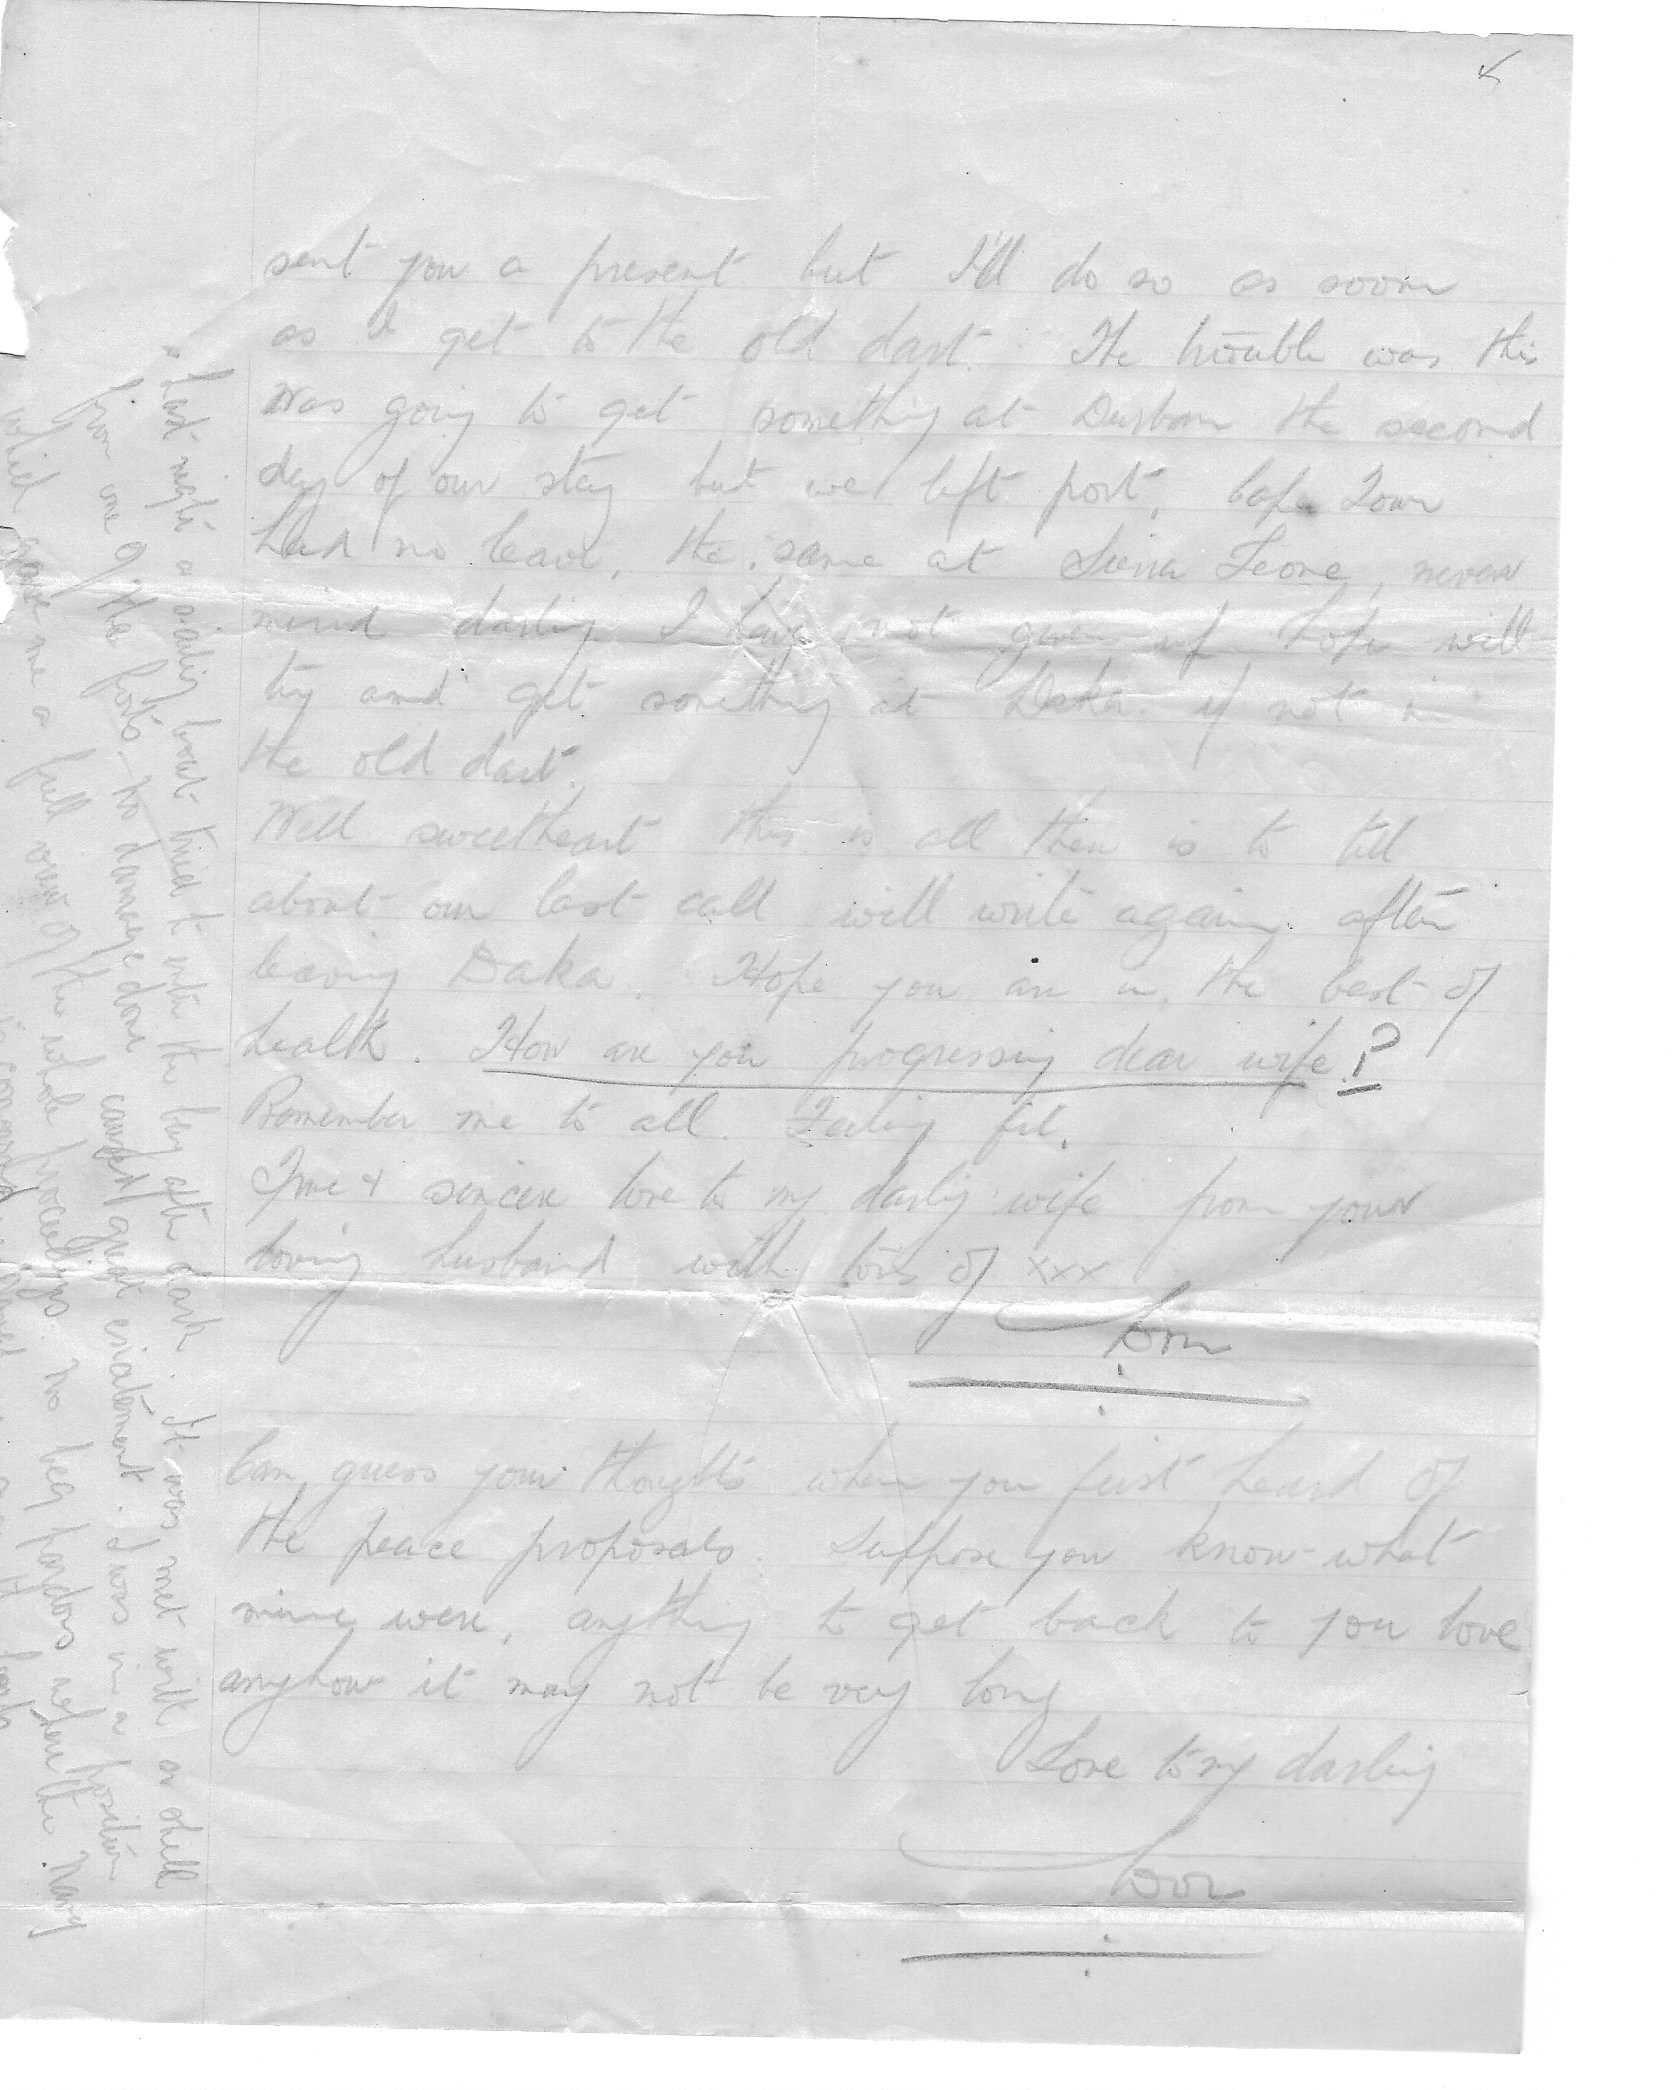 sent you a present but I'll do so as soon
as I get to the old dart. The trouble was this
was going to get something at Durban the second
day of our stay but we left port, Cape Town
had no leave, the same at Sierra Leone, never
mind darling I have not given up hope will
try and get something at Daka. if not in
the old dart.
Well sweetheart this is all there is to tell
about our last call will write again after
leaving Daka. Hope you are in the best of
health. How are you progressing dear wife?
Remember me to all. Feeling fit.
True & sincere love to my darling wife from your
loving husband with tons of xxx
Don
Can guess your thoughts when you first heard of
the peace proposals. Suppose you know what
mine were, anything to get back to you love
anyhow it may not be very long
Love to my darling
Don
Last night a sailing boat tried to enter the bay after dark. It was met with a shell
from one of the forts - no damage done caused great exiatement. I was in a position
which gave me a full view of the whole proceedings. No beg pardons when the Navy